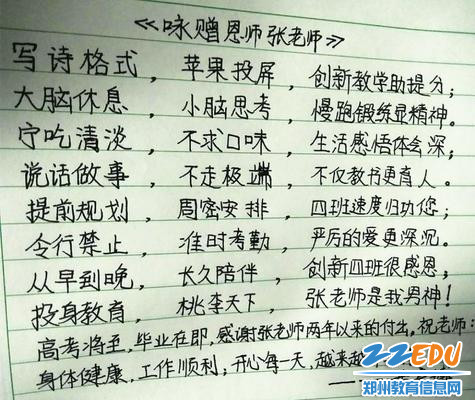 《咏赠恩师张老师》
写诗格式，苹果投屏，创新教学助提分；
大脑休息，小脑思考，慢跑锻练显精神。
宁吃清淡，不求口味，生活感悟体会深；
说话做事，不走极端，不仅教书更育人。
提前规划，周密安排，四班速度归功您；
令行禁止，准时考勤，严厉的爱更深沉。
从早到晚，长久陪伴，创新四班很感恩；
投身教育，桃李天下，张老师是我男神！
高考将至，毕业在即，感谢张老师两年以来的付出。祝老师：
身体健康，工作顺利，开心每一天，越来越
ZZEDU
郑州教育信息网